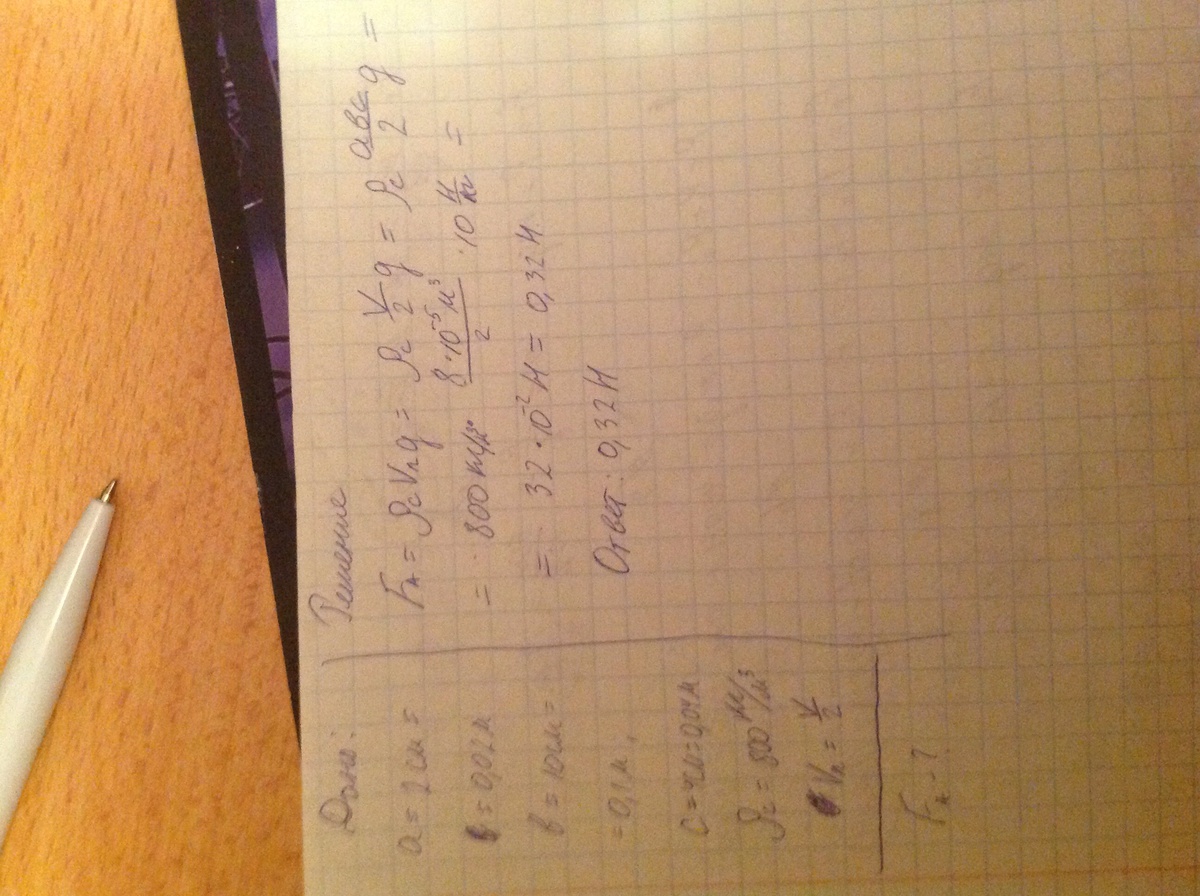 Дано:
a = 2 см =
= 0,02 м
в = 10 см =
= 0,1 м,
c = 4 см = 0,04 м
ρс = 800 кг/м³
Vп = V/2
FA - ?
Решение
FA = ρс Vп g = ρс V/2 g = ρс aвc/2 g =
= 800 кг/м³ · 8 · 10⁻⁵ м³/2 · 10 Н/кг =
= 32 · 10⁻² Н = 0,32 Н
Ответ: 0,32 Н